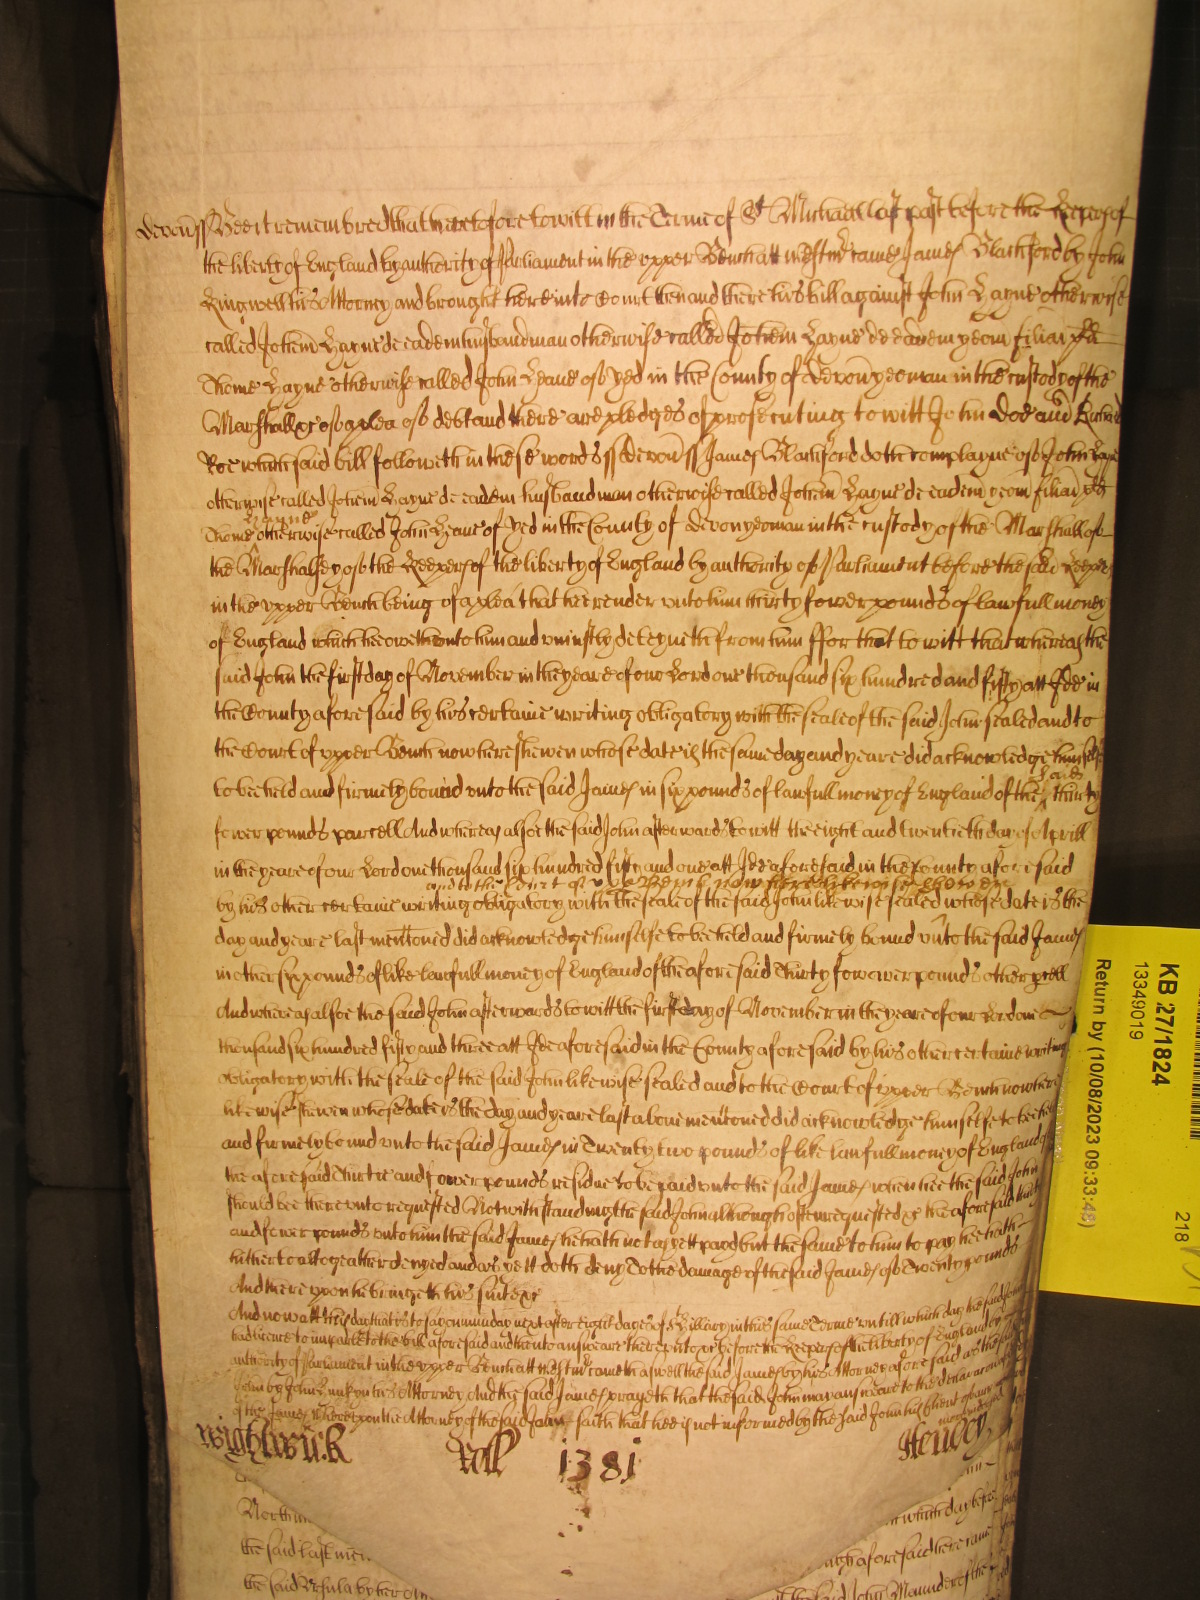 Devon ss Bee it remembred that heretofore to witt in the Terme of St Michaell last past before the Keepers of
the liberty of England by authority of Parliament in the upper Bench att Westmr came James Blatchford by John
Kingwell his Attorney and brought here into Court then and there his bill against John Layne otherwise
called Johem Layne de eadem husbandman otherwise called Johem Layne de eadem yeom filiu
Thome Layne otherwise called John Leane of Yed in the County of Devon yeoman in the custody of the
Marshall &c of a plea of debt and there are pledges of prosecuting to witt John Doe and Richard
Roe which said bill followeth in these words ss Devon ss James Blatchford doth complayne of John Layne
otherwise called Johem Layne de eadem husbandman otherwise called Johem Layne de eadem yeom filiu
Thome Layne otherwise called John Leane of Yed in the County of Devon yeoman in the custody of the Marshall of
the Marshalsey of the Keepers of the liberty of England by authority of Parliament before the said Keepers
in the upper Bench being of a plea that hee render unto him thirty fower pounds of lawfull money
of England which hee oweth unto him and uniustly deteyneth from him ffor that to witt that whereas the
said John the first day of November in the yeare of our Lord one thousand six hundred and fifty att Ide in
the County aforesaid by his certaine writing obligatory with the seale of the said John sealed and to
the Court of upper Bench now here shewen whose date is the same day and yeare did acknowledge himselfe
to bee held and firmely bound unto the said James in six pounds of lawfull money of England of the said thirty
fower pounds parcell And whereas alsoe the said John afterwards to witt the eight and twentieth day of Aprill
in the yeare of our Lord one thousand six hundred fifty and one att Ide aforesaid in the County aforesaid
and to the Court of upper Bench now here likewise shewen
by his other certaine writing obligatory with the seale of the said John likewise sealed whose date is the
day and yeare last mentioned did acknowledge himselfe to bee held and firmely bound unto the said James
in other six pounds of like lawfull money of England of the aforesaid Thirty fowower pounds other pcell
And whereas alsoe the said John afterwards to witt the first day of November in the yeare of our Lord one
thousand six hundred fifty and three att Ide aforesaid in the County aforesaid by his other certaine writing
obligatory with the seale of the said John likewise sealed and to the Court of upper Bench now here
likewise shewen whose date is the day and yeare last above mentioned did acknowledge himselfe to bee held
and firmely bound unto the said James in Twenty two pounds of like lawfull money of England of
the aforesaid Thirtie and fower pounds residue to be paid unto the said James when hee the said John
should bee thereunto requested Notwithstanding the said John although often requested &c the aforesaid thirty
and fower pounds unto him the said James he hath not as yett payd but the same to him to pay hee hath
hitherto altogeather denyed and as yett doth deny To the damage of the said James of Twenty pounds
And thereupon he bringeth his suite &c
And now att this day that is to say on munday next after eight dayes of St Hillary in this same Terme untill which day the said John
had licence to imparle to the bill aforesaid and then to answeare thereunto &c before the Keepers of the liberty of England by
authority of Parliament in the upper Bench att Westmr cometh aswell the said James by his Attorney aforesaid as the said
John by John his Attorney And the said James prayeth that the said John may answeare to the declaracon
of the James Whereupon the Attorney of the said John saith that hee is not informed by the said John his Client of any
Wightwick Roll 1381 Henley
the said last men
the said Ursula by her
which day before
aforesaid here came
the said John Maunder of the
KB 27/1824
13349019
Return by (10/08/2023 09:33:4
218